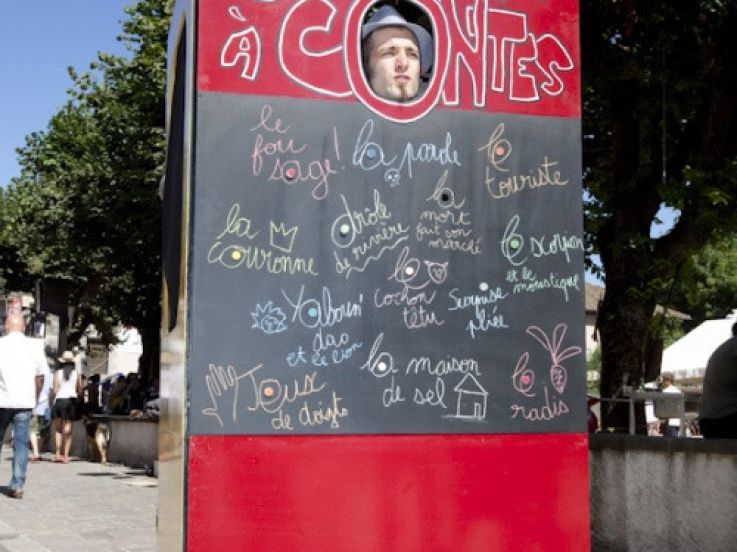 à
contes
le
fou
sage!
la parole
le
touriste
la
couronne
drôle
de rivière
la
mort
fait son
marché
le scorpion
et le moustique
Yaboun'
dao
et le lion
le
cochon
têtu
Surprise
pliée
Jeux
de doigts
la maison
de sel
le
radis